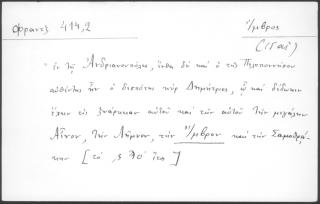 Φραντζ 414,2
Ἴμβρος
(Ἰταϊ)
Ἐν τῇ Ἀνδριανουπόλει, ἔνθα δὴ καὶ ὁ τῆς Πελοποννήσου
αὐθέντης ἦν ὁ δεσπότης κὺρ Δημήτριος, ᾧ καὶ δέδωκεν
ἔχειν εἰς ζωάρκειαν αὐτοῦ καὶ τῶν αὐτοῦ τὴν μεγάλην
Αἶνον, τὴν Λῆμνον, τὴν Ἴμβρον καὶ τὴν Σαμοθρά-
κην [τὸ ϛ ἔτος]